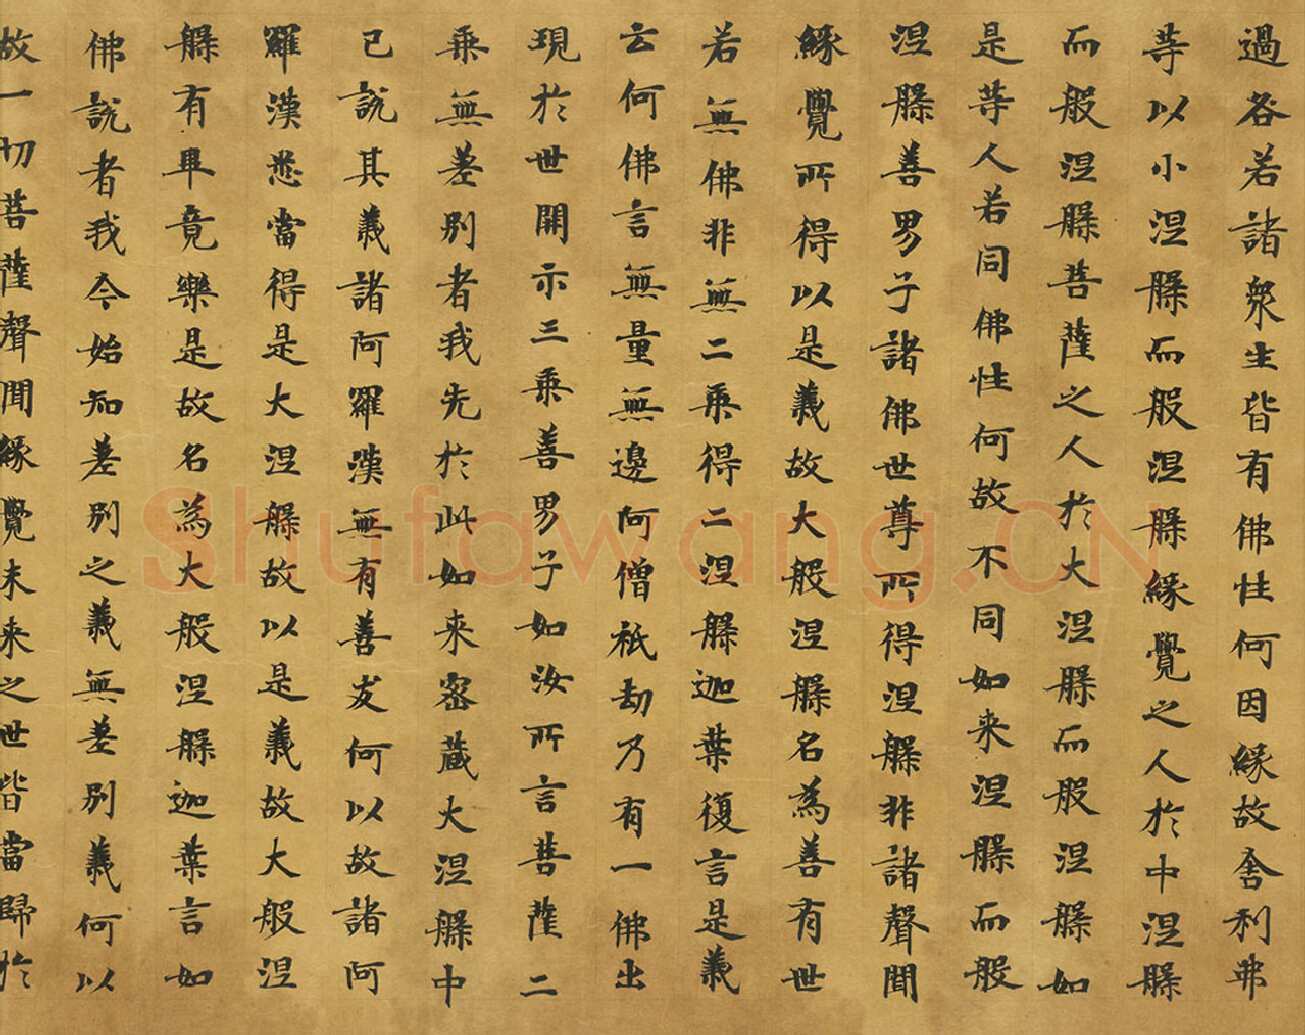 過各若諸衆生皆有佛性何因緣故舍利弗
等以小涅槃而般涅槃緣覺之人於中涅槃
而般涅槃菩薩之人於大涅槃而般涅槃如
是等人若同佛性何故不同如来涅槃而般
涅槃善男子諸佛世尊所得涅槃非諸聲聞
緣覺所得以是義故大般涅槃名為善有世
若無佛非無二乘得二涅槃迦葉復言是義
云何佛言無量無邊阿僧祇劫乃有一佛出
現於世開示三乘善男子如汝所言菩薩二
乘無差別者我先於此如来密蔵大涅槃中
已說其義諸阿羅漢無有善友何以故諸阿
羅漢悉當得是大涅槃故以是義故大般涅
槃有畢竟樂是故名為大般涅槃迦葉言如
佛說者我今始知差別之義無差別義何以
故一切菩薩聲聞緣覺未来之世皆當歸於
Shufawang.CN